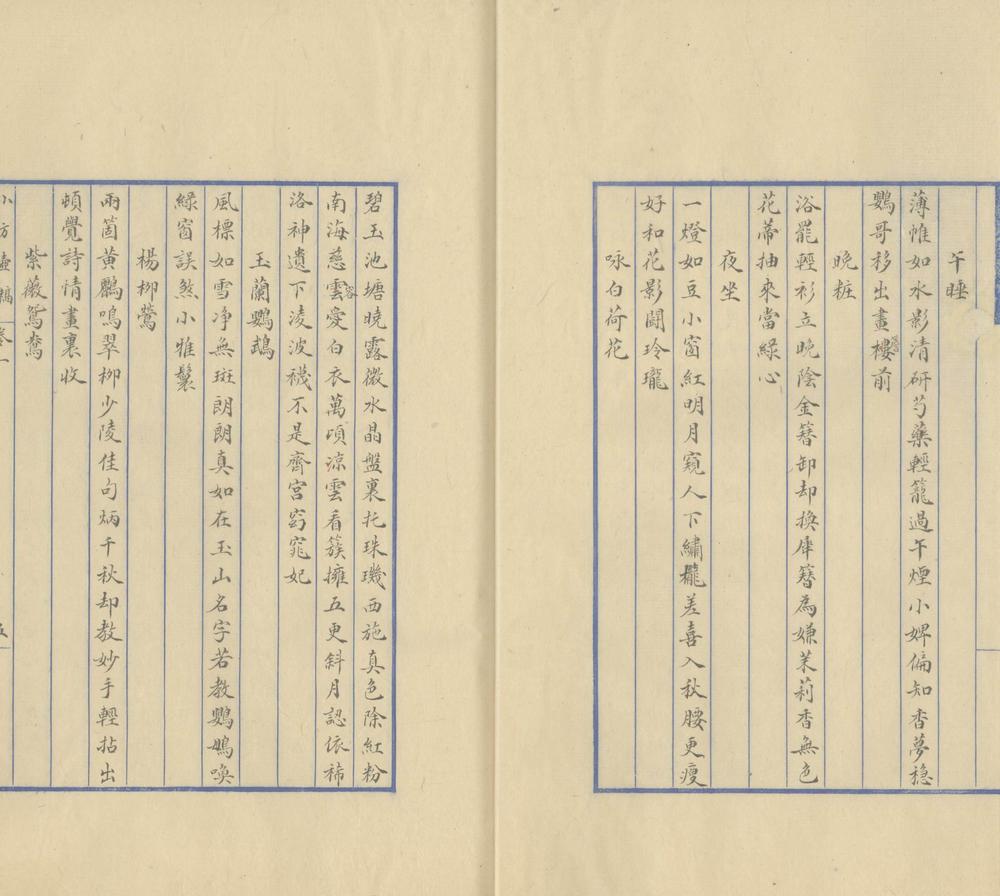 午睡
薄帷如水影清研芍藥輕籠過午煙小婢偏知香夢穩
鸚哥移出畫樓前
晚粧
浴罷輕衫立晚陰金簪卸却換犀簪為嫌茉莉香無色
花蒂抽來當綠心
夜坐
一燈如豆小窗紅明月窺人下繡櫳差喜入秋腰更瘦
好和花影鬪玲瓏
咏白荷花
碧玉池塘曉露微水晶盤裏托珠璣西施真色除紅粉
南海慈雲愛白衣萬頃涼雲看簇擁五更斜月認依稀
容
洛神遺下淩波襪不是齊宮窈窕妃
玉蘭鸚鵡
風標如雪净無斑朗朗真如在玉山名字若教鸚鵡喚
綠窗誤煞小雅鬟
楊柳鶯
兩箇黃鸝鳴翠柳少陵佳句炳千秋却教妙手輕拈出
頓覺詩情畫裏收
紫薇鴛鴦
小方壺稿 卷一
五